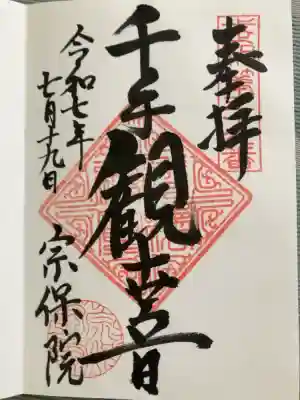 奉拝
千手観音
令和七年
七月十九日
宗保院